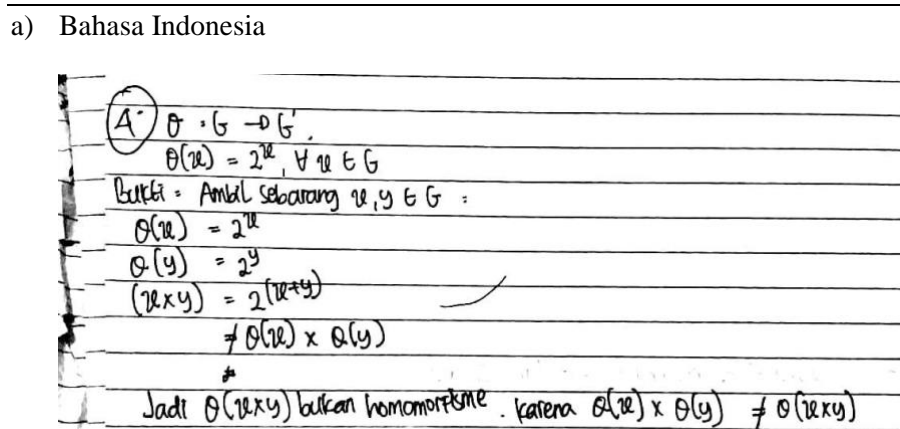 a) Bahasa Indonesia
4. θ : G → G'.
θ(x) = 2^x, ∀ x ∈ G
Bukti = Ambil sebarang x, y ∈ G :
θ(x) = 2^x
θ(y) = 2^y
(x×y) = 2^(x+y)
≠ θ(x) × θ(y)
≠
Jadi θ(x×y) bukan homomorfisme. karena θ(x) × θ(y) ≠ θ(x×y)